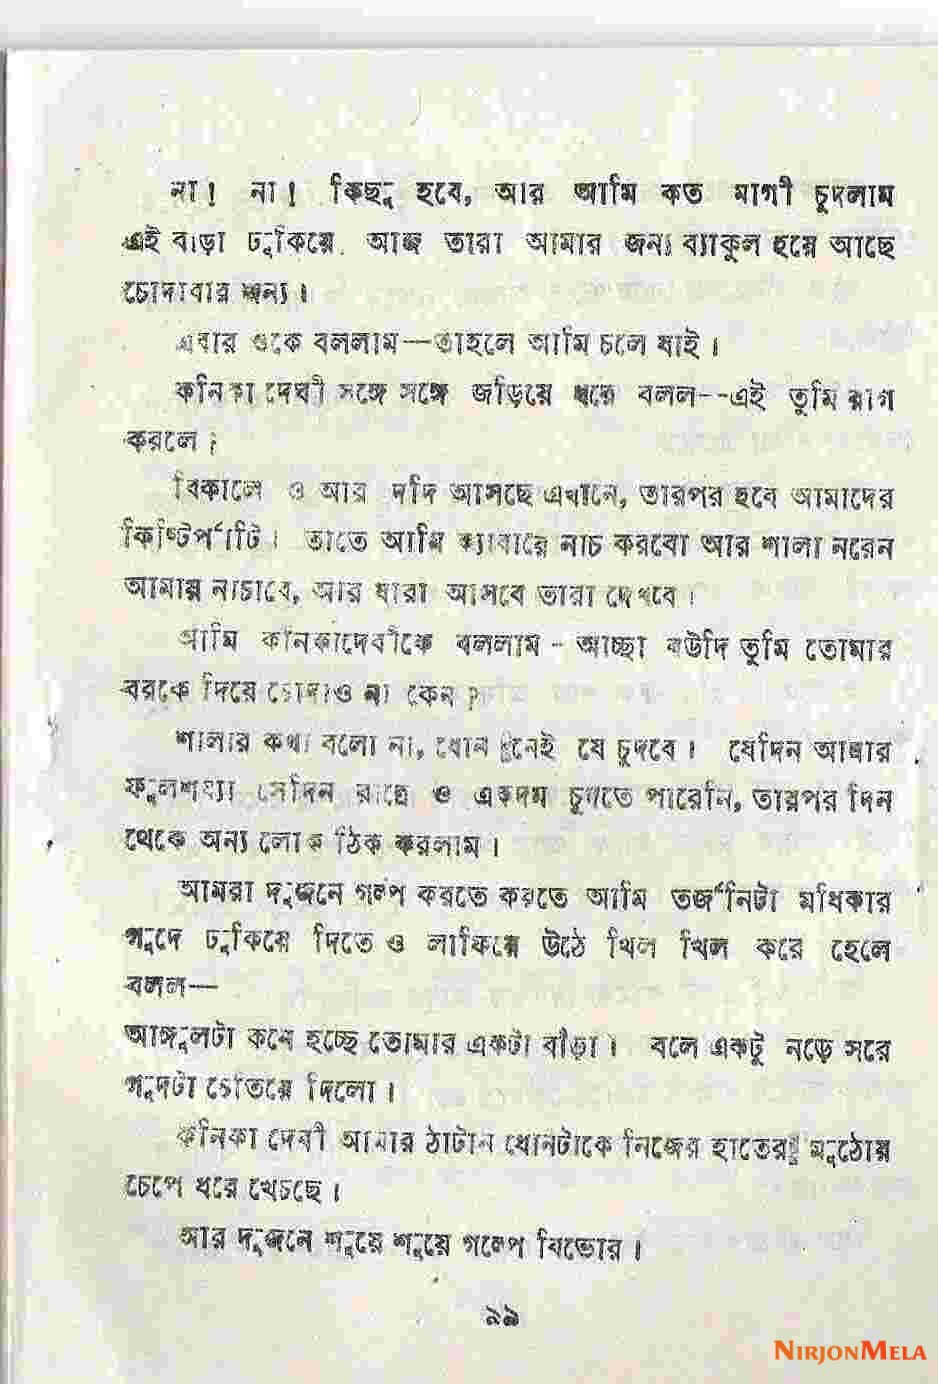 না! না! কিছু হবে, আর আমি কত মাগী চুদলাম
এই বাড়া ঢুকিয়ে. আজ তারা আমার জন্য ব্যাকুল হয়ে আছে
চোদাবার জন্য।
এবার ওকে বললাম—তাহলে আমি চলে যাই।
কনিকা দেবী সঙ্গে সঙ্গে জড়িয়ে ধরে বলল--এই তুমি রাগ
করলে ?
বিকালে ও আর দদি আসছে এখানে, তারপর হবে আমাদের
কিষ্টিপার্টি। তাতে আমি ক্যাবারে নাচ করবো আর শালা নরেন
আমায় নাচাবে, আর যারা আসবে তারা দেখবে।
আমি কনিকাদেবীকে বললাম - আচ্ছা বউদি তুমি তোমার
বরকে দিয়ে চোদাও না কেন ?
শালার কথা বলো না, ধোন নেই যে চুদবে। যেদিন আমার
ফুলশয্যা সেদিন রাত্রে ও একদম চুদতে পারেনি, তারপর দিন
থেকে অন্য লোক ঠিক করলাম।
আমরা দুজনে গল্প করতে করতে আমি তর্জনিটা মধিকার
গুদে ঢুকিয়ে দিতে ও লাফিয়ে উঠে খিল খিল করে হেলে
বলল—
আঙ্গুলটা কনে হচ্ছে তোমার একটা বাঁড়া। বলে একটু নড়ে সরে
গুদটা চেতিয়ে দিলো।
কনিকা দেবী আমার ঠাটান ধোনটাকে নিজের হাতের মুঠোয়
চেপে ধরে খেচছে।
আর দুজনে শুয়ে শুয়ে গল্পে বিভোর।
৯৯
NIRJONMELA